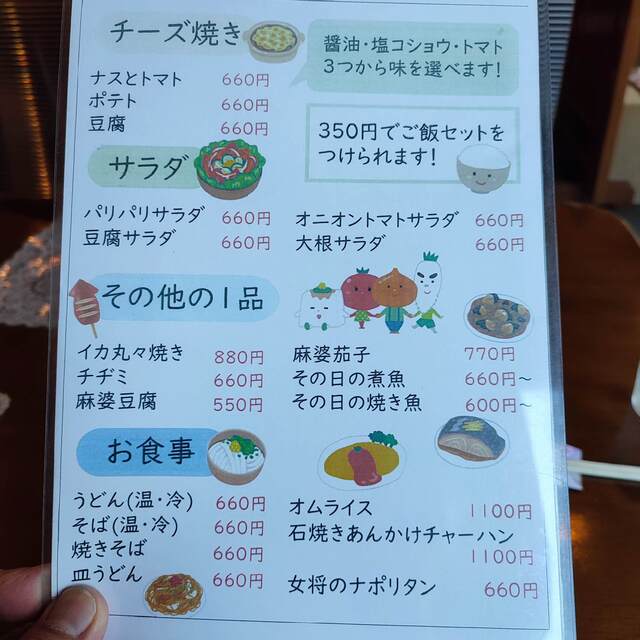 チーズ焼き
醤油・塩コショウ・トマト
3つから味を選べます!
ナスとトマト 660円
ポテト 660円
豆腐 660円
350円でご飯セットを
つけられます!
サラダ
パリパリサラダ 660円 オニオントマトサラダ 660円
豆腐サラダ 660円 大根サラダ 660円
その他の1品
イカ丸々焼き 880円 麻婆茄子 770円
チヂミ 660円 その日の煮魚 660円~
麻婆豆腐 550円 その日の焼き魚 600円~
お食事
うどん(温・冷) 660円 オムライス 1100円
そば(温・冷) 660円 石焼きあんかけチャーハン
焼きそば 660円 1100円
皿うどん 660円 女将のナポリタン 660円